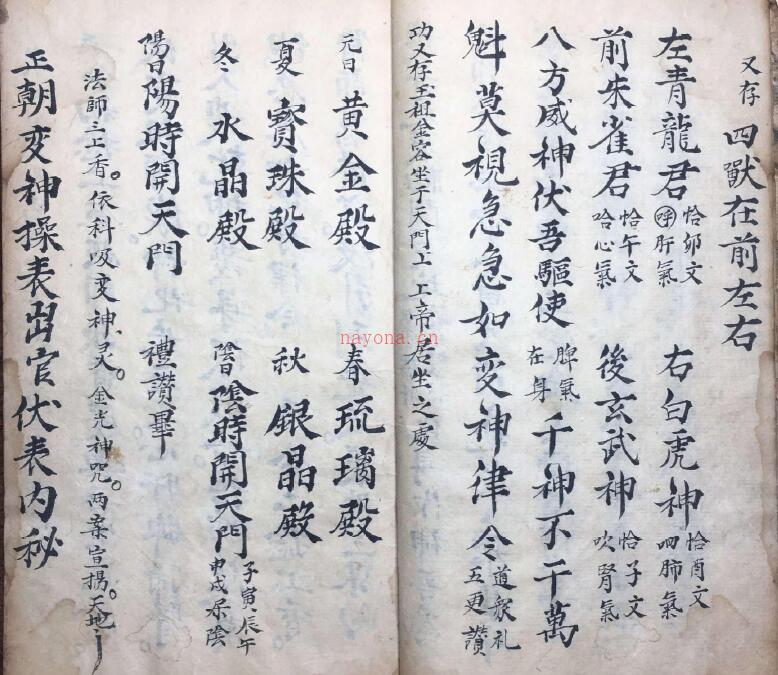 又存 四獸在前左右
左青龍君 恰卯文 呼肝氣 右白虎神 恰酉文 呬肺氣
前朱雀君 恰午文 哈心氣 後玄武神 恰子文 吹腎氣
八方威神伏吾驅使 脾氣在身 千神不干萬
魁莫視急急如变神律令 道眾礼五更讚
功又存玉祖金容坐于天門上上帝居坐之處
元日 黄金殿 春 琉璃殿
夏 寳珠殿 秋 銀晶殿
冬 水晶殿 陰日 陰時開天門 子寅辰午申戌 陰
陽日陽時開天門 禮讚畢
法師三上香。依科吸变神灵。金光神咒。两案宣揚。天地
正朝变神操表 官伏表内秘
nayona.cn